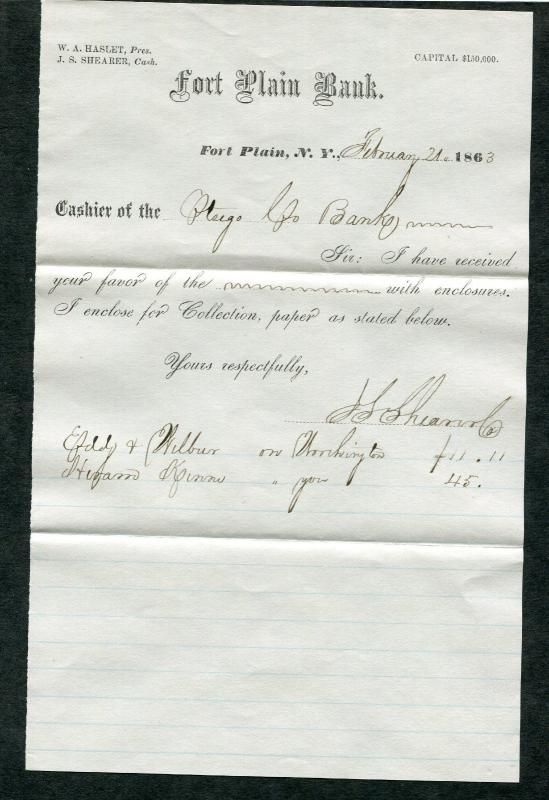 W. A. HASLET, Pres.
J. S. SHEARER, Cash.
CAPITAL $150,000.
Fort Plain Bank.
Fort Plain, N. Y., February 21 1863
Cashier of the Otsego Co Bank
Sir: I have received
your favor of the with enclosures.
I enclose for Collection, paper as stated below.
Yours respectfully,
J S Shearer C
Eddy & Wilbur on Worthington 
Hiram Kinne " you 45.